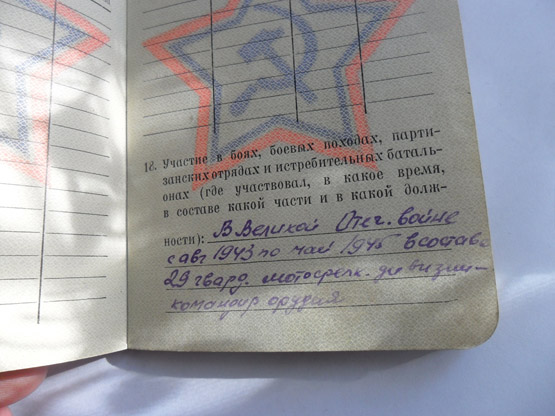 18. Участие в боях, боевых походах, парти-
занских отрядах и истребительных баталь-
онах (где участвовал, в какое время,
в составе какой части и в какой долж-
ности): В Великой Отеч. войне
с авг 1943 по май 1945 в состав
29 гвард. мотострелк. дивизии-
командир орудия